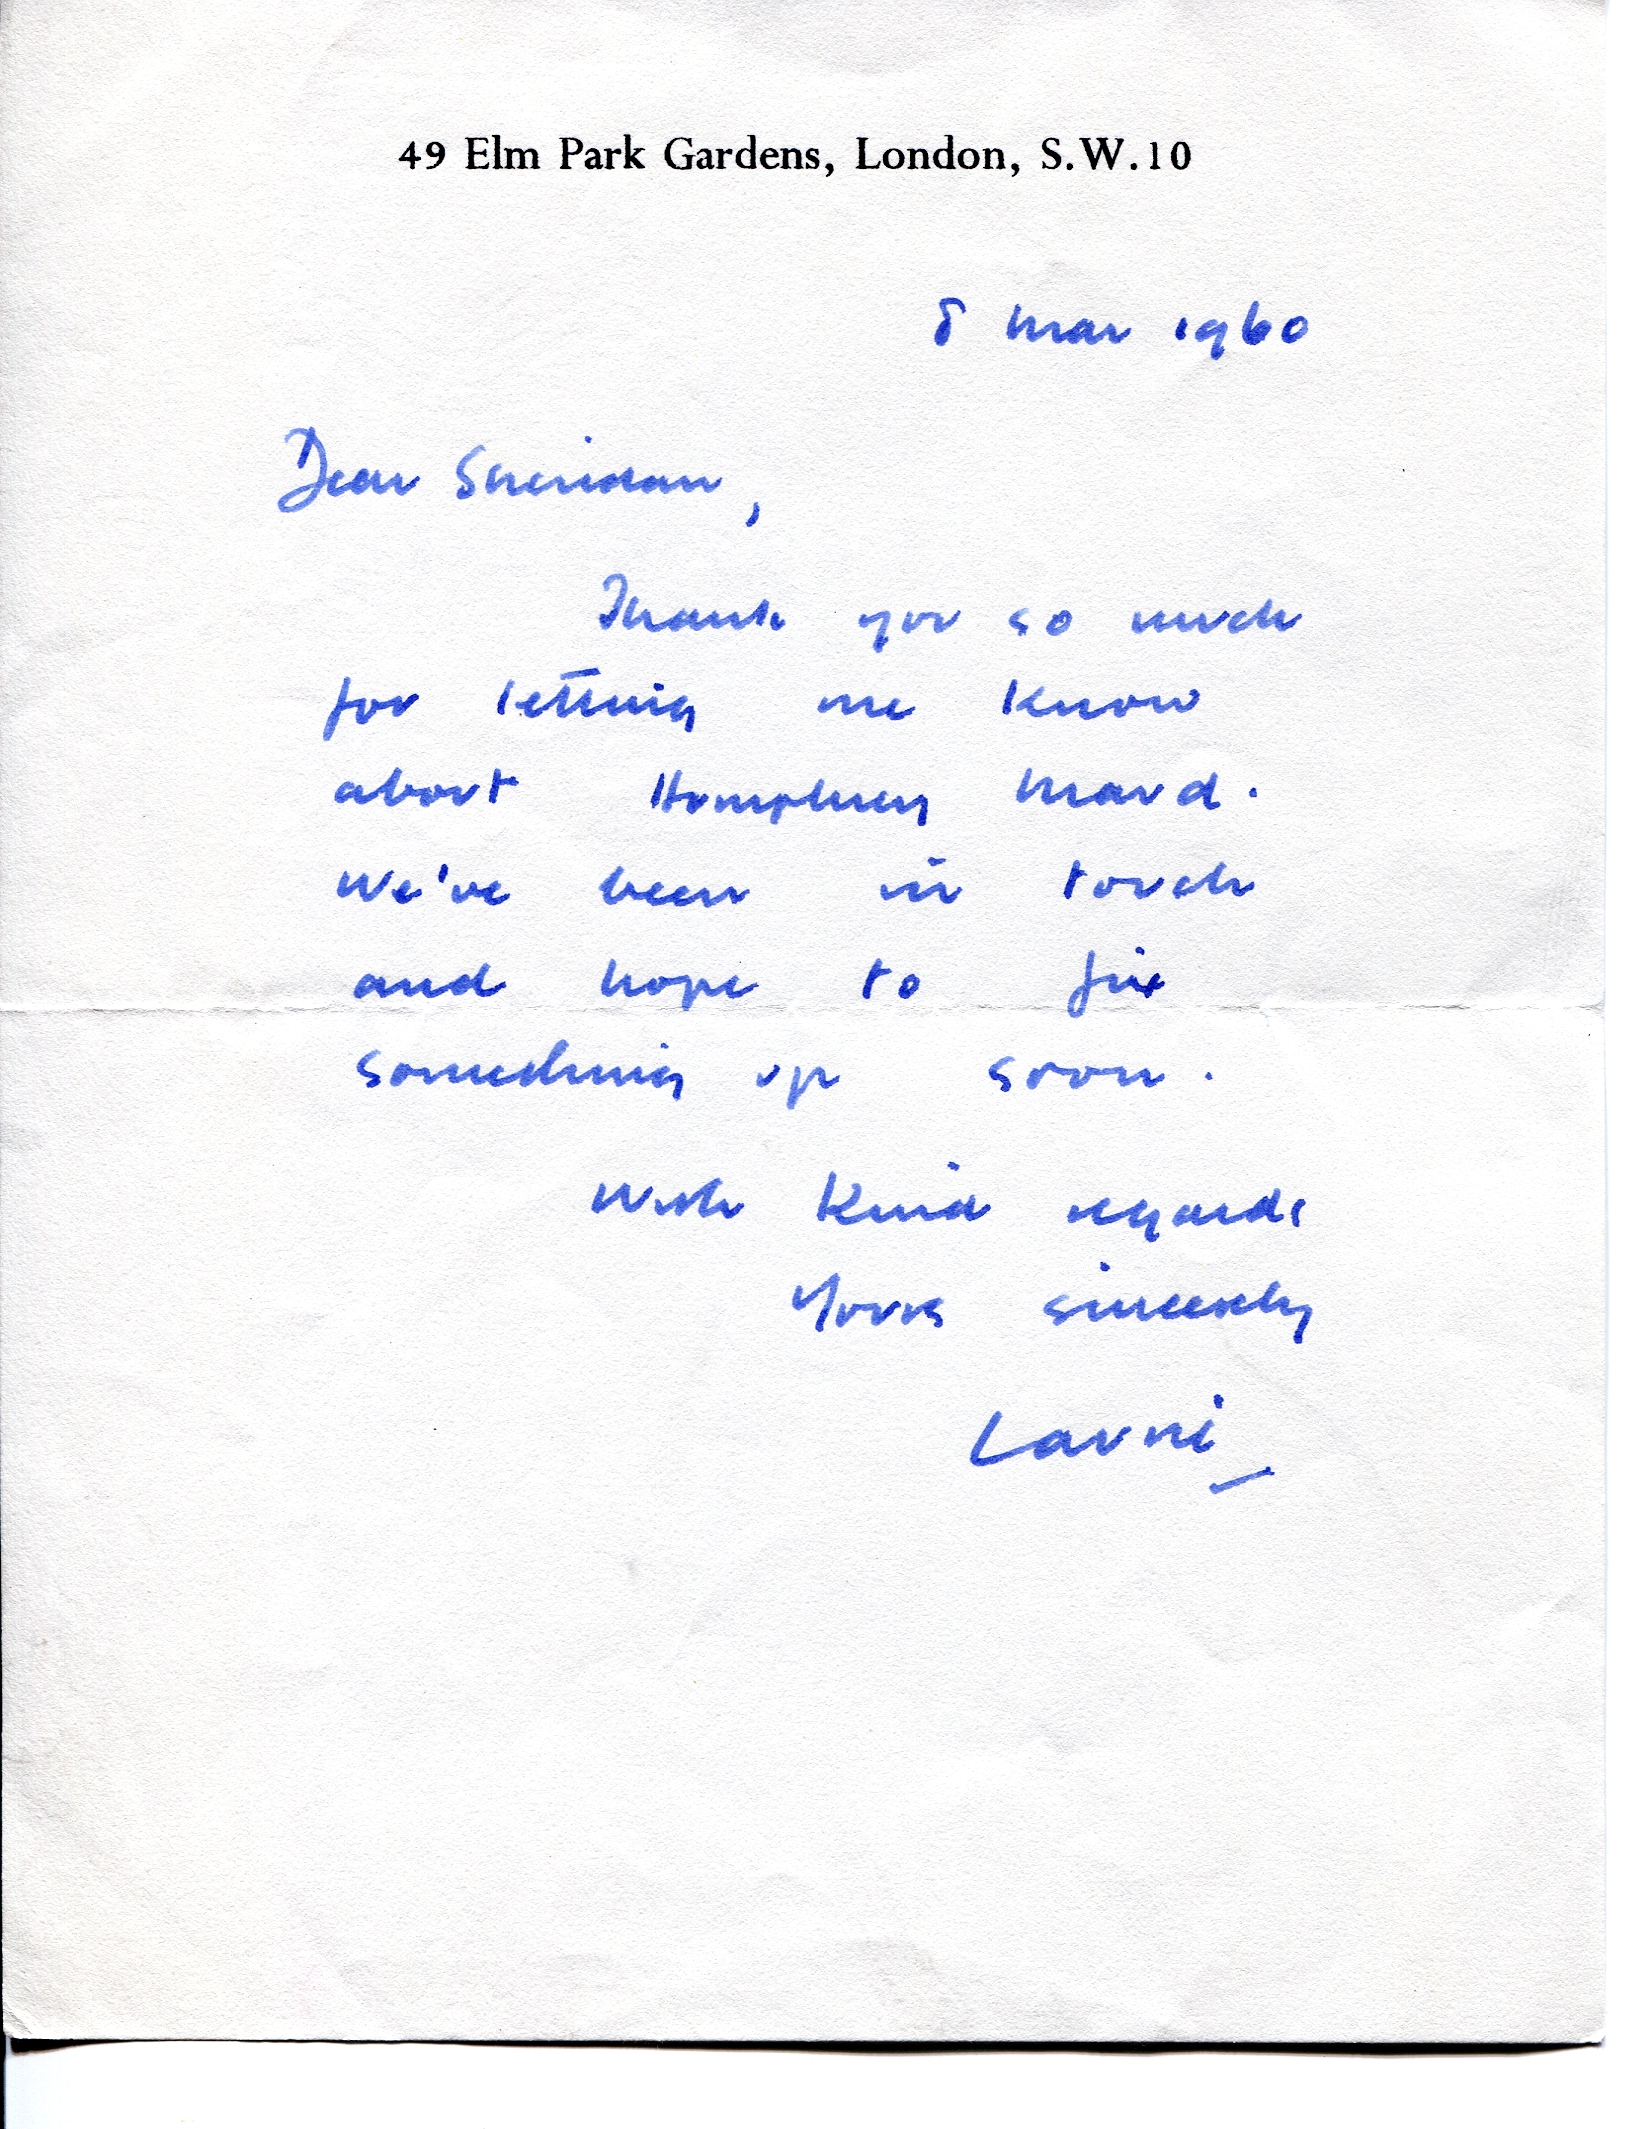 49 Elm Park Gardens, London, S.W.10
8 Mar 1960
Dear Sheridan,
Thank you so much
for letting me know
about Humphrey Maud.
We've been in touch
and hope to fix
something up soon.
With kind regards
Yours sincerely